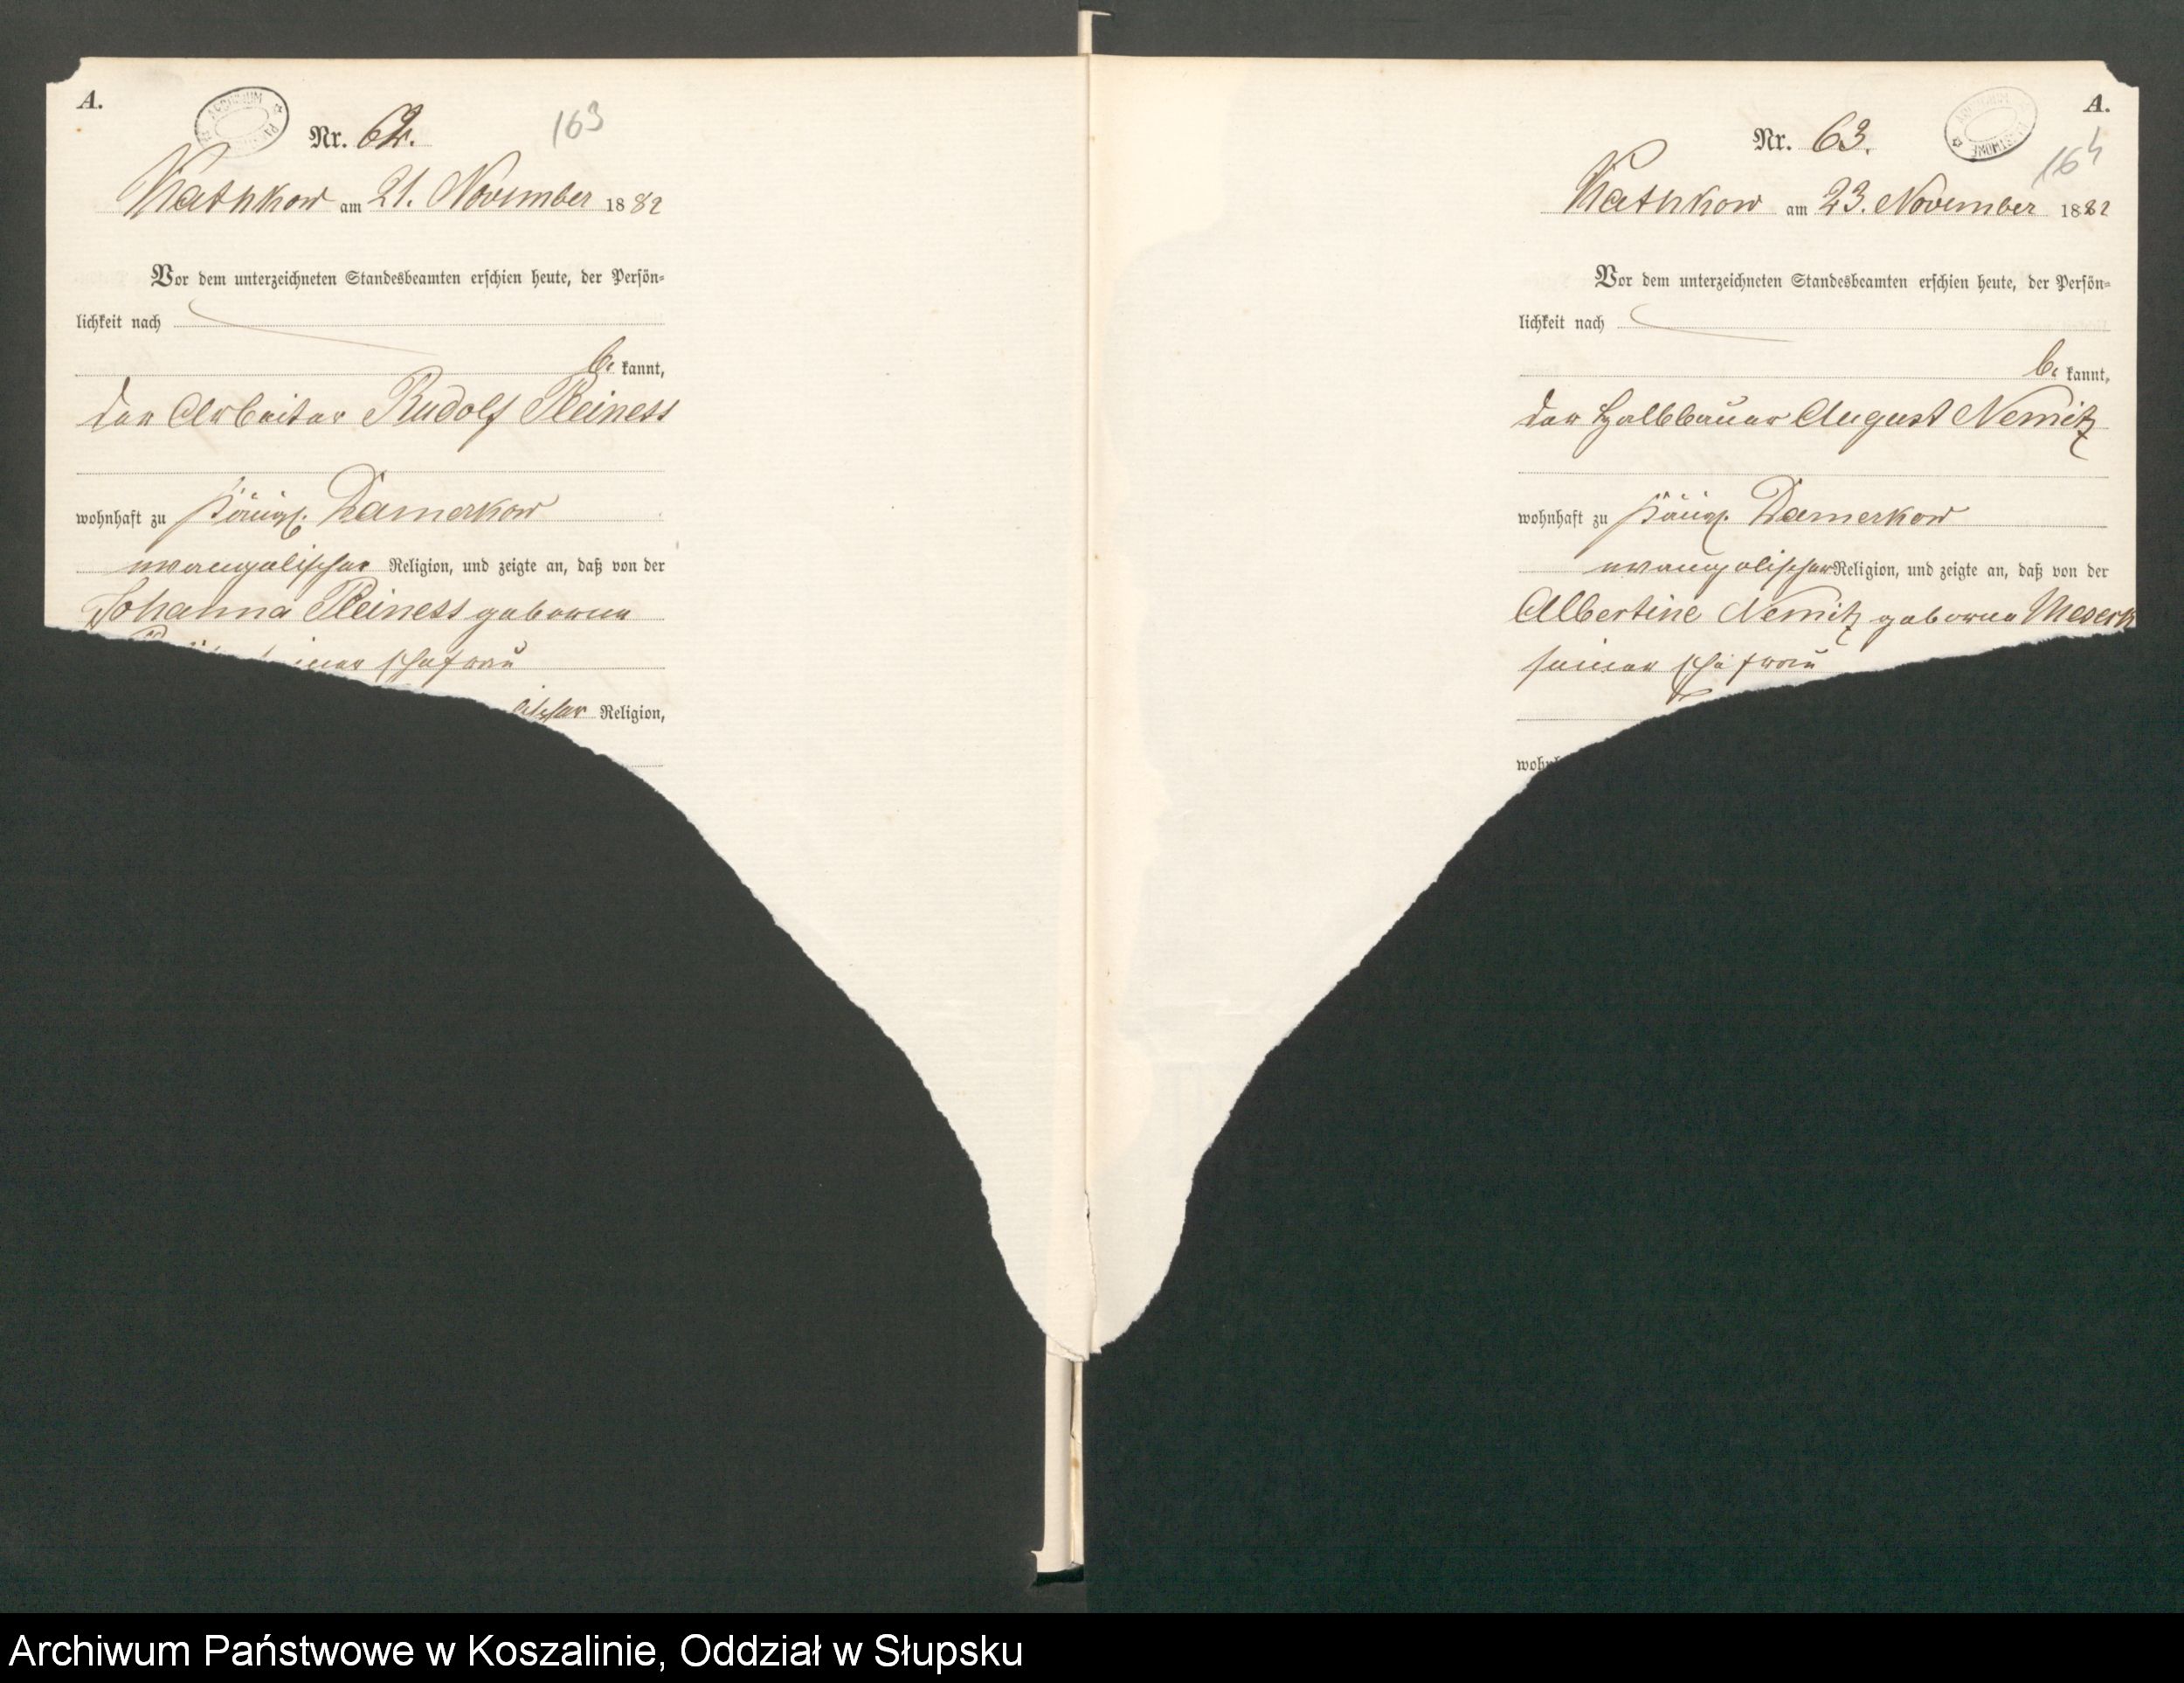 A.
Nr. 62.
163
am 21. November 1882
Vor dem unterzeichneten Standesbeamten erschien heute, der Persön-
lichkeit nach
be kannt,
der Arbeiter Rudolf Pleiness
wohnhaft zu Königl. Damerkow
evangelischer Religion, und zeigte an, daß von der
Johanna Pleiness geborene
Ehefrau
Religion,
A.
Nr. 63.
164
am 23. November 1882
Vor dem unterzeichneten Standesbeamten erschien heute, der Persön-
lichkeit nach
be kannt,
der Halbbauer August Nemitz
wohnhaft zu Königl. Damerkow
evangelischer Religion, und zeigte an, daß von der
Albertine Nemitz geborne
seiner Ehefrau
Archiwum Państwowe w Koszalinie, Oddział w Słupsku